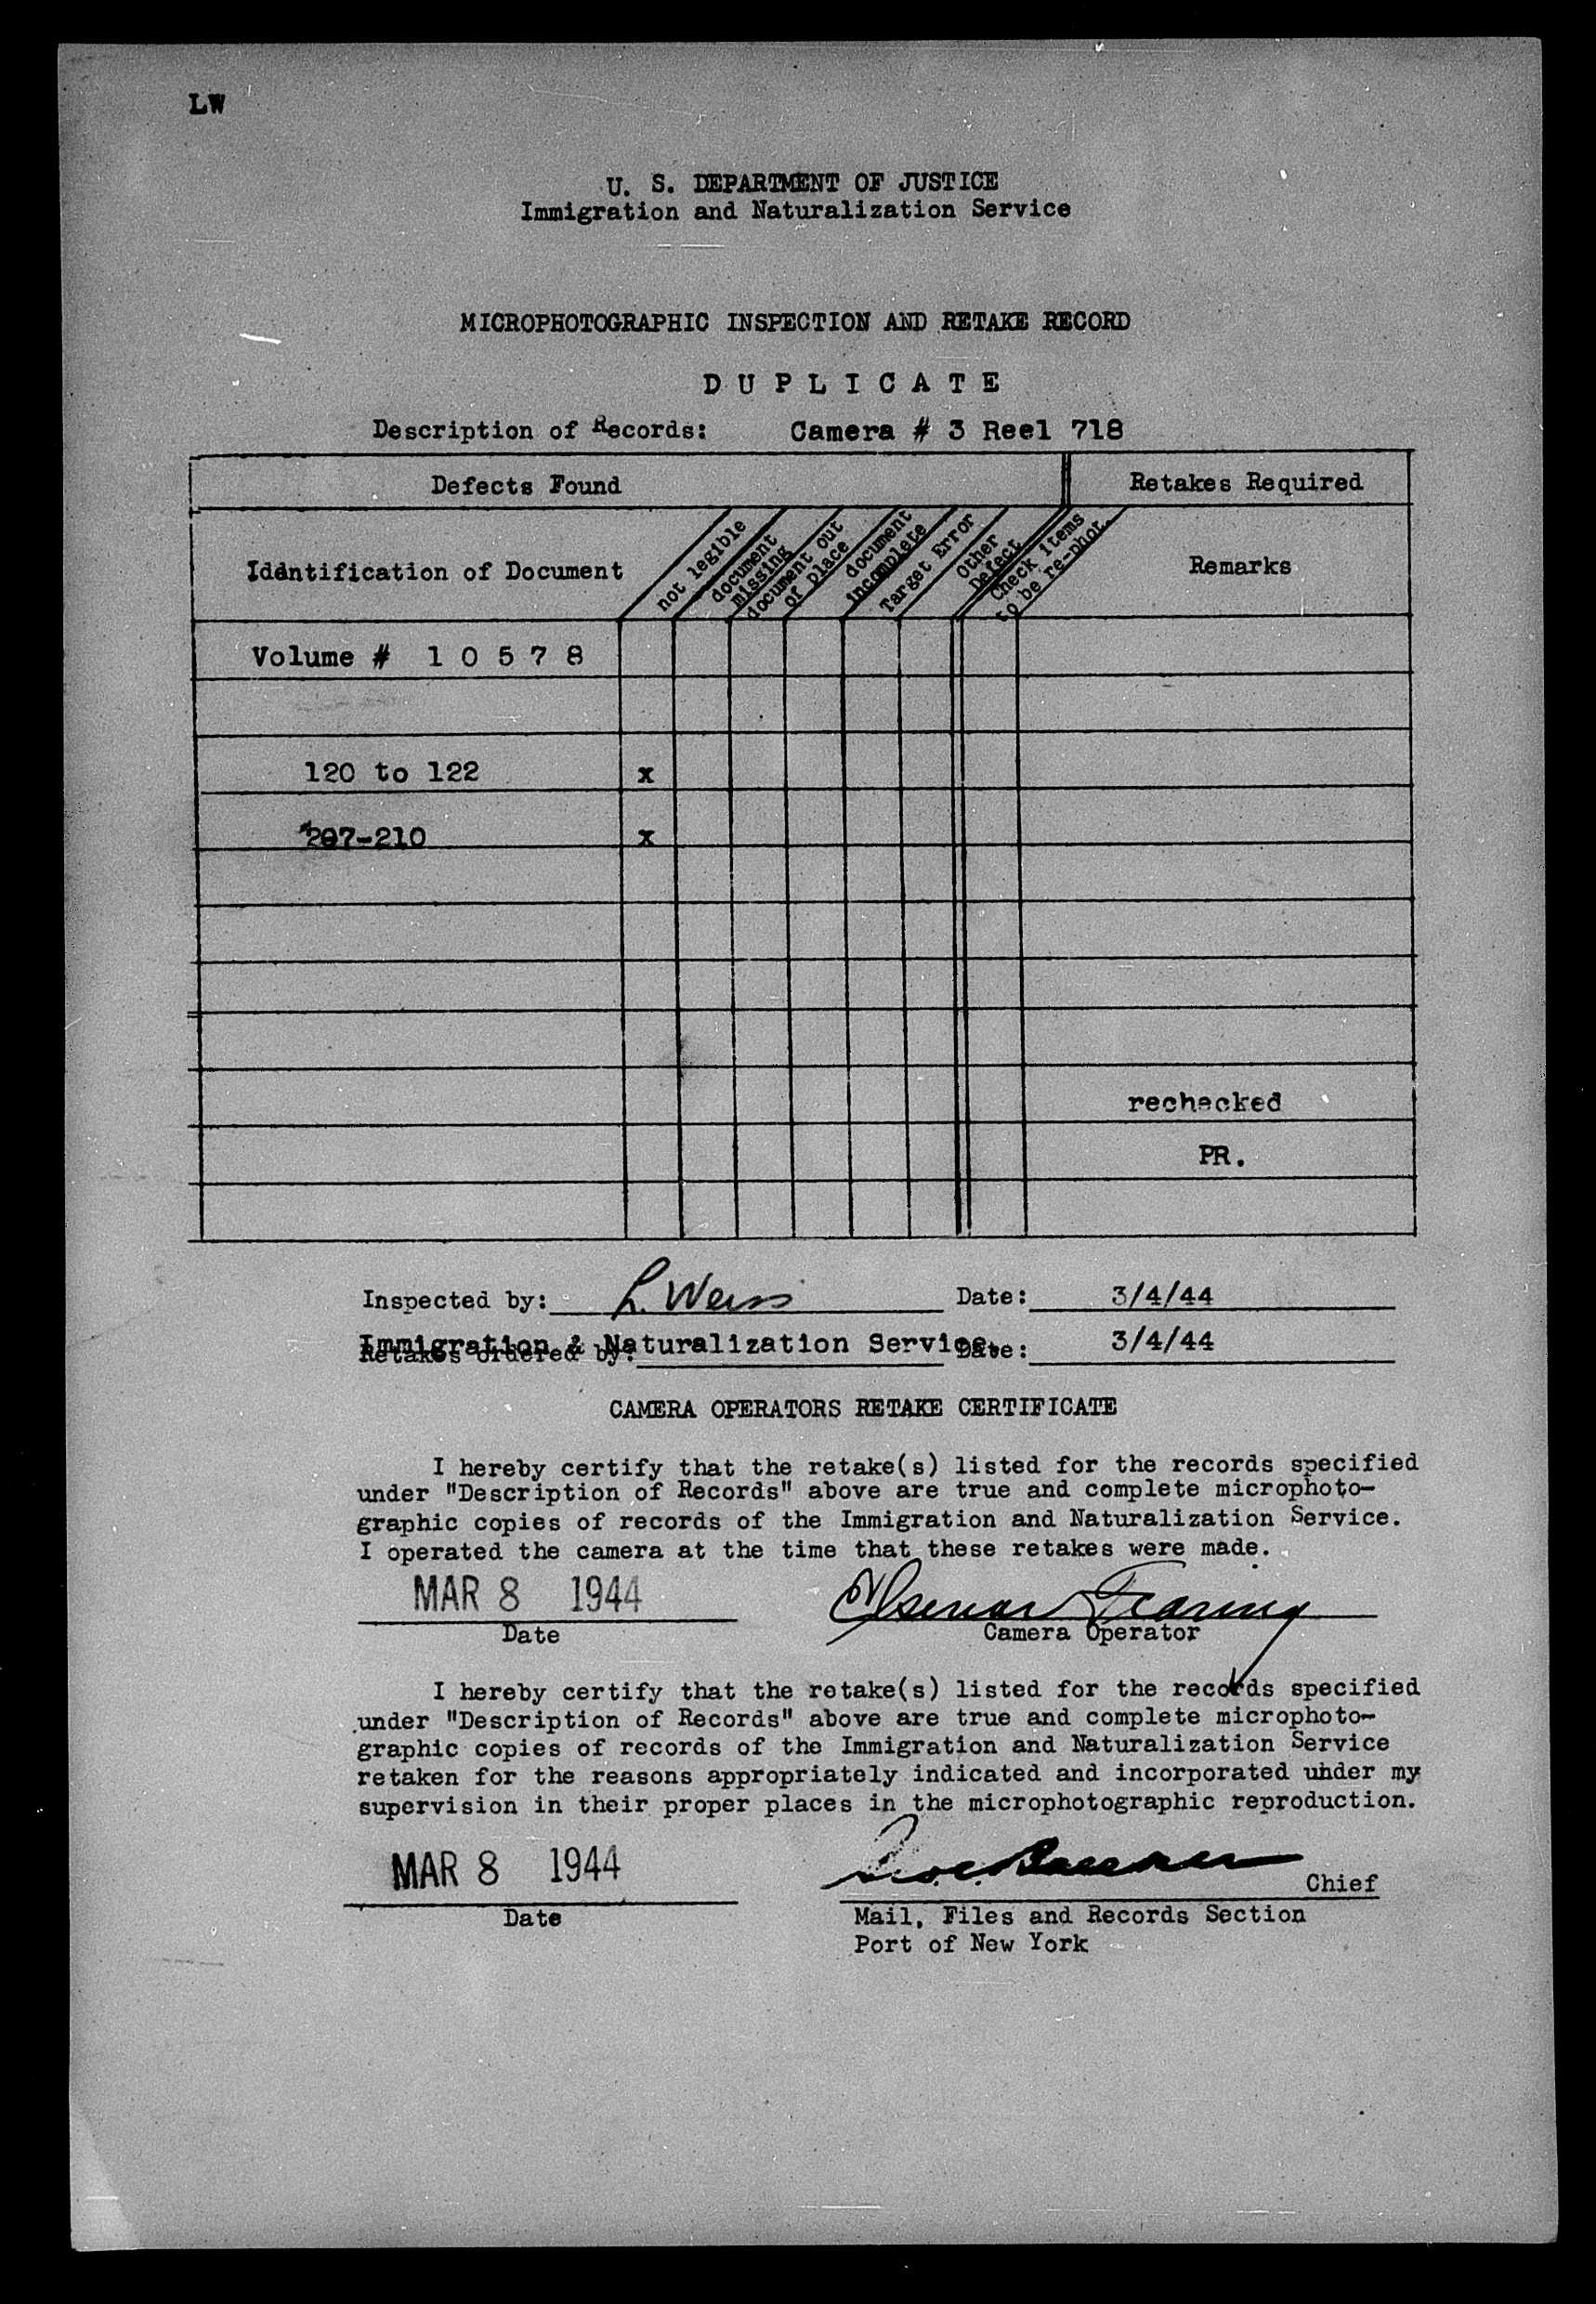 LW
U. S. DEPARTMENT OF JUSTICE
Immigration and Naturalization Service
MICROPHOTOGRAPHIC INSPECTION AND RETAKE RECORD
D U P L I C A T E
Description of Records: Camera # 3 Reel 718
Defects Found Retakes Required
Identification of Document
not legible
document missing
document out of place
document incomplete
Target Error
Other Defect
Check items to be re-phot.
Remarks
Volume # 1 0 5 7 8
120 to 122 x
207-210 x
rechecked
PR.
Inspected by: L. Weiss Date: 3/4/44
Immigration & Naturalization Service 3/4/44
Retakes ordered by: Date:
CAMERA OPERATORS RETAKE CERTIFICATE
I hereby certify that the retake(s) listed for the records specified
under "Description of Records" above are true and complete microphoto-
graphic copies of records of the Immigration and Naturalization Service.
I operated the camera at the time that these retakes were made.
MAR 8 1944
Date Camera Operator
I hereby certify that the retake(s) listed for the records specified
under "Description of Records" above are true and complete microphoto-
graphic copies of records of the Immigration and Naturalization Service
retaken for the reasons appropriately indicated and incorporated under my
supervision in their proper places in the microphotographic reproduction.
MAR 8 1944
Chief
Date Mail, Files and Records Section
Port of New York